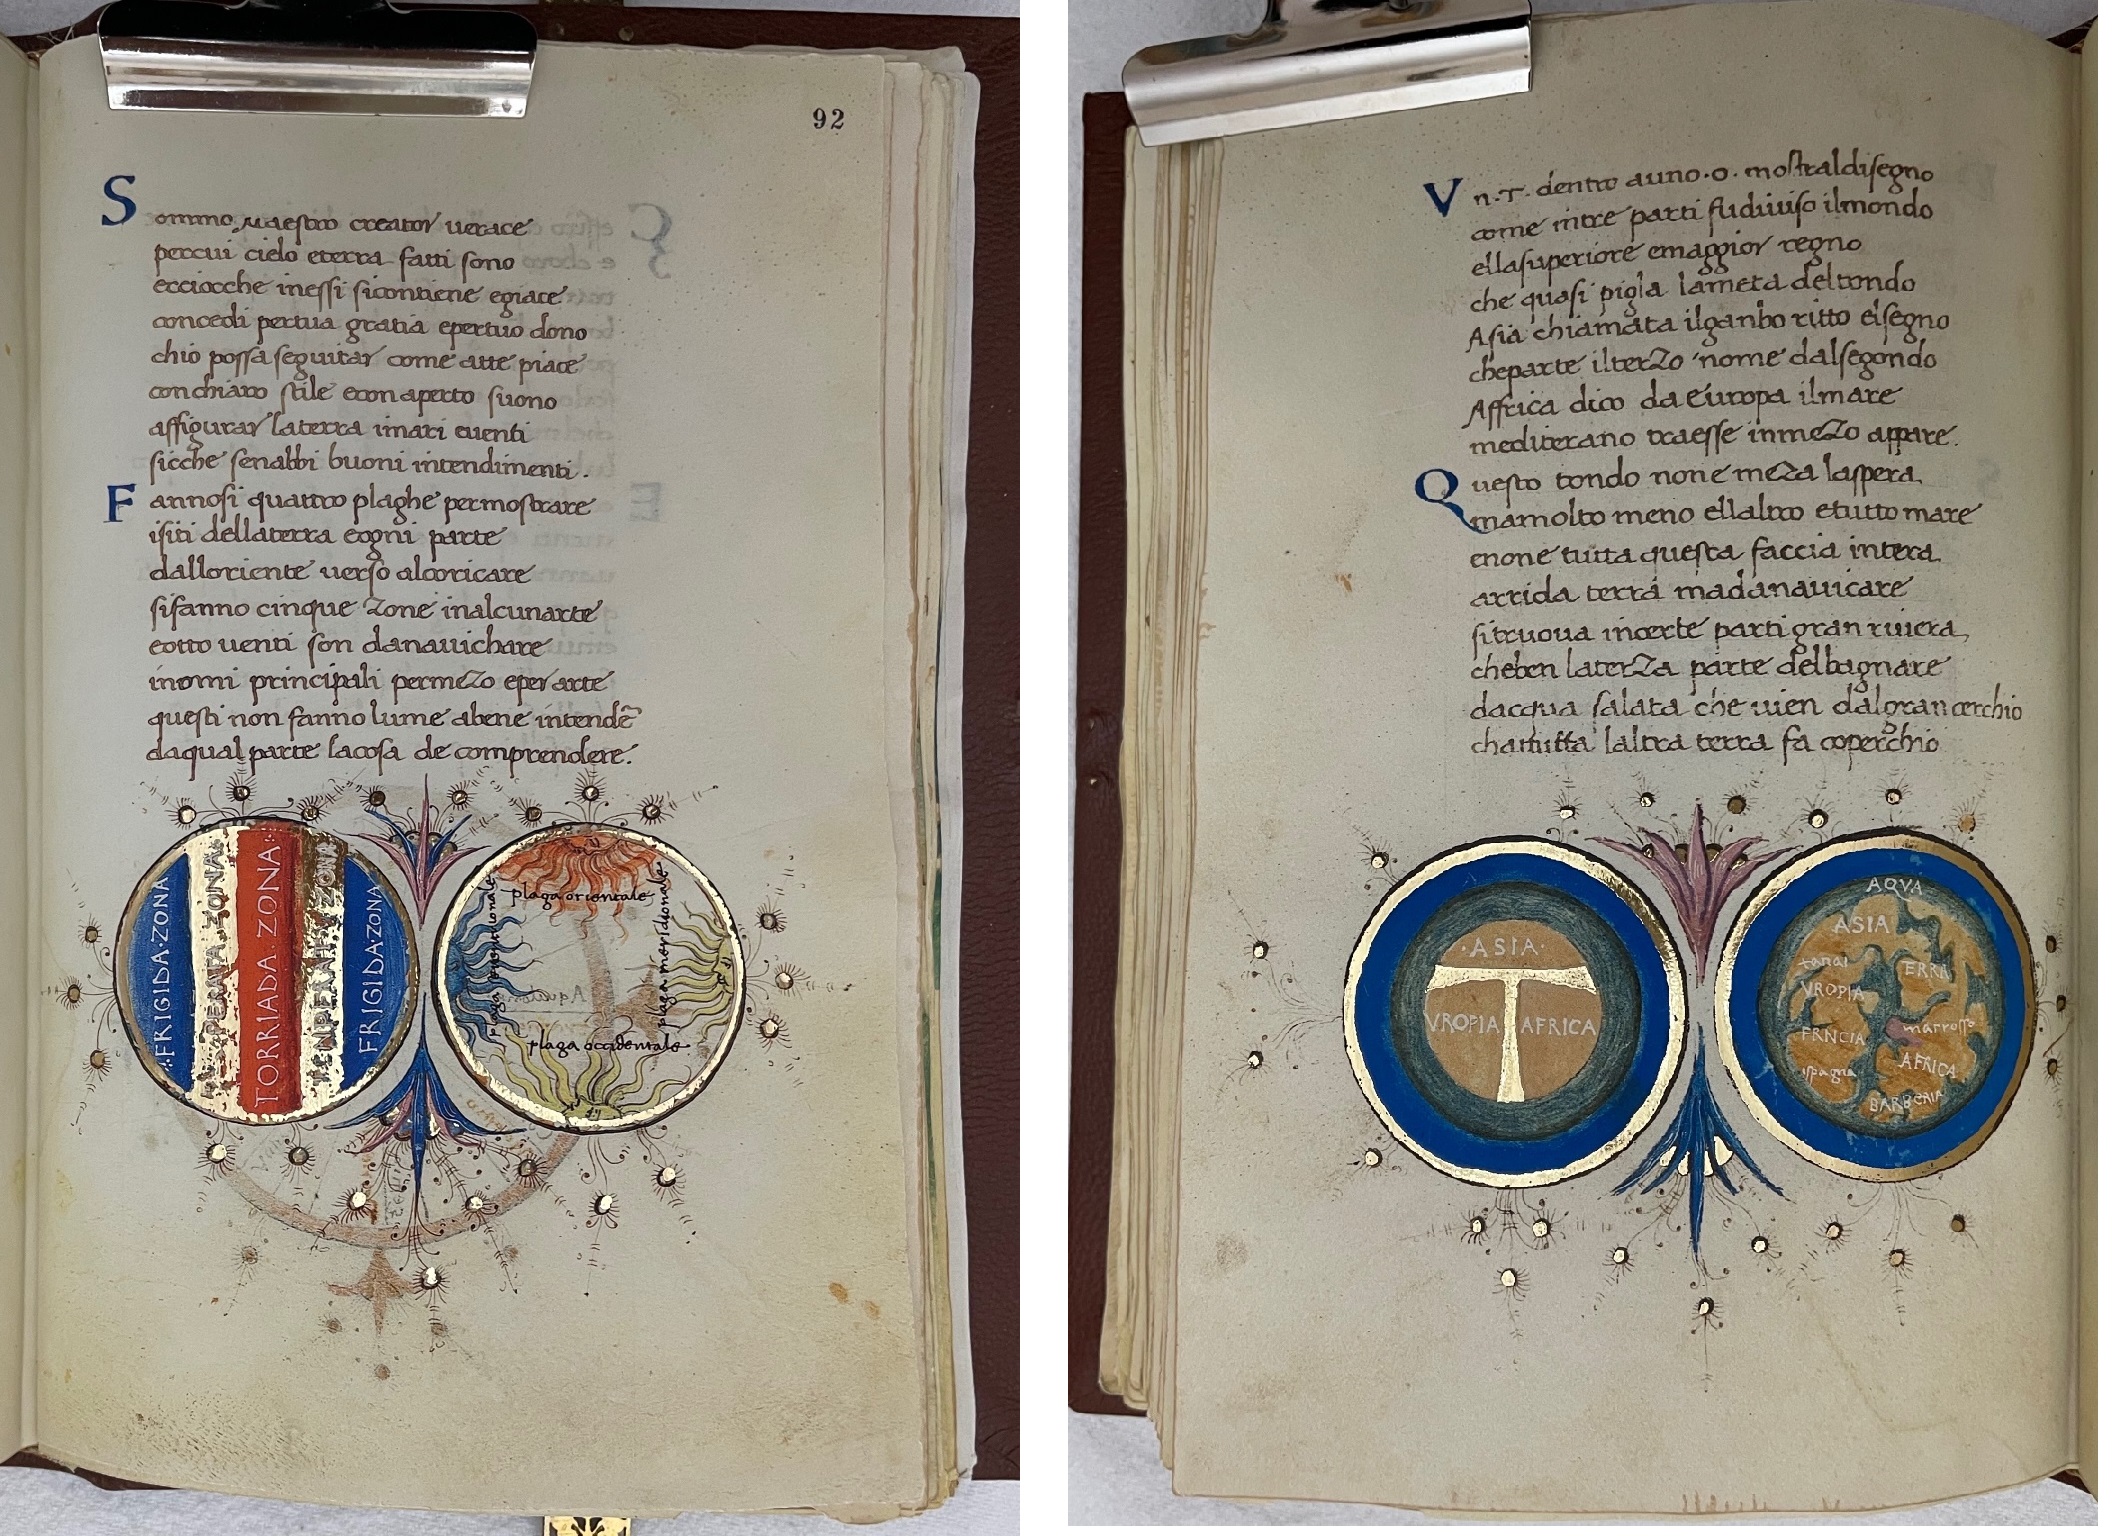 92
Sommo maestro creator uerace
percui cielo eterra fatti sono
ecciocche inessi sicontiene egiace
concedi pertua gratia epertuo dono
chio possa seguitar come atte piace
conchiaro stile econ aperto suono
affigurar laterra imari euenti
sicche senabbi buoni intendimenti.
Fannosi quattro plaghe permostrare
isiti dellaterra eogni parte
dalloriente uerso alcoricare
sifanno cinque zone inalcunarte
eotto uenti son danauichare
inomi principali permezo eper arte
questi non fanno lume abene intendē
daqual parte lacosa de comprendere.
FRIGIDA·ZONA
PERATA·ZONA
TORRIADA·ZONA·
TENPERATA ZONA
FRIGIDA·ZONA
plaga orientale
plaga meridionale
plaga occidentale
Vn·T· dentro auno·o· mostraldisegno
come intre parti fudiuiso ilmondo
ellasuperiore emaggior regno
che quasi pigla lameta deltondo
Asia chiamata ilganbo ritto elsegno
cheparte ilterzo nome dalsegondo
Affrica dico da europa ilmare
mediterano traesse inmezo appare.
Questo tondo none meza laspera
mamolto meno ellaltro etutto mare
enone tutta questa faccia intera
arrida terra madanauicare
sitruoua incerte parti gran riuiera
cheben laterza parte delbagnare
dacqua salata che uien dalgran cerchio
chattutta laltra terra fa coperchio
·ASIA·
VROPIA
AFRICA
AQVA
ASIA
tanai
ERRA
VROPIA
marrosso
FRNCIA
AFRICA
ispagna
BARBERIA